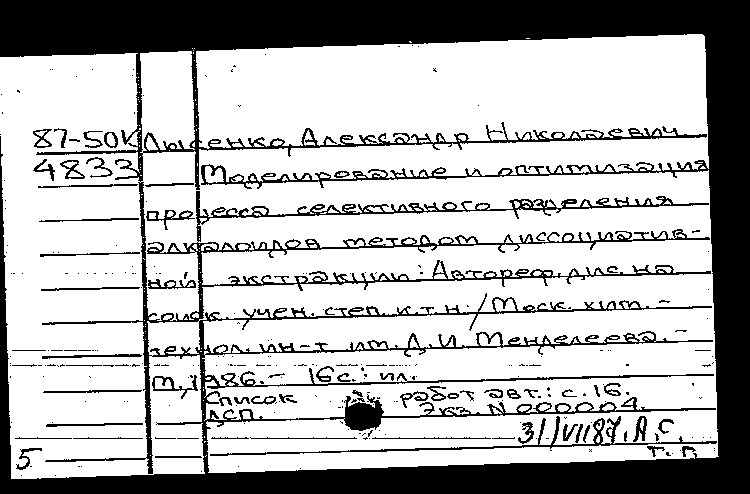 87-50К Лысенко, Александр Николаевич
4833 Моделирование и оптимизация
процесса селективного разделения
алкалоидов методом диссоциатив-
ной экстракции: Автореф. дис. на
соиск. учен. степ. к.т.н. / Моск. хим.-
технол. ин-т им. Д. И. Менделеева. -
М., 1986. - 16 с.: ил.
Список работ авт.: с. 16.
ДСП. Экз. N 000004.
31/VII87. А.С.
5 Т. П